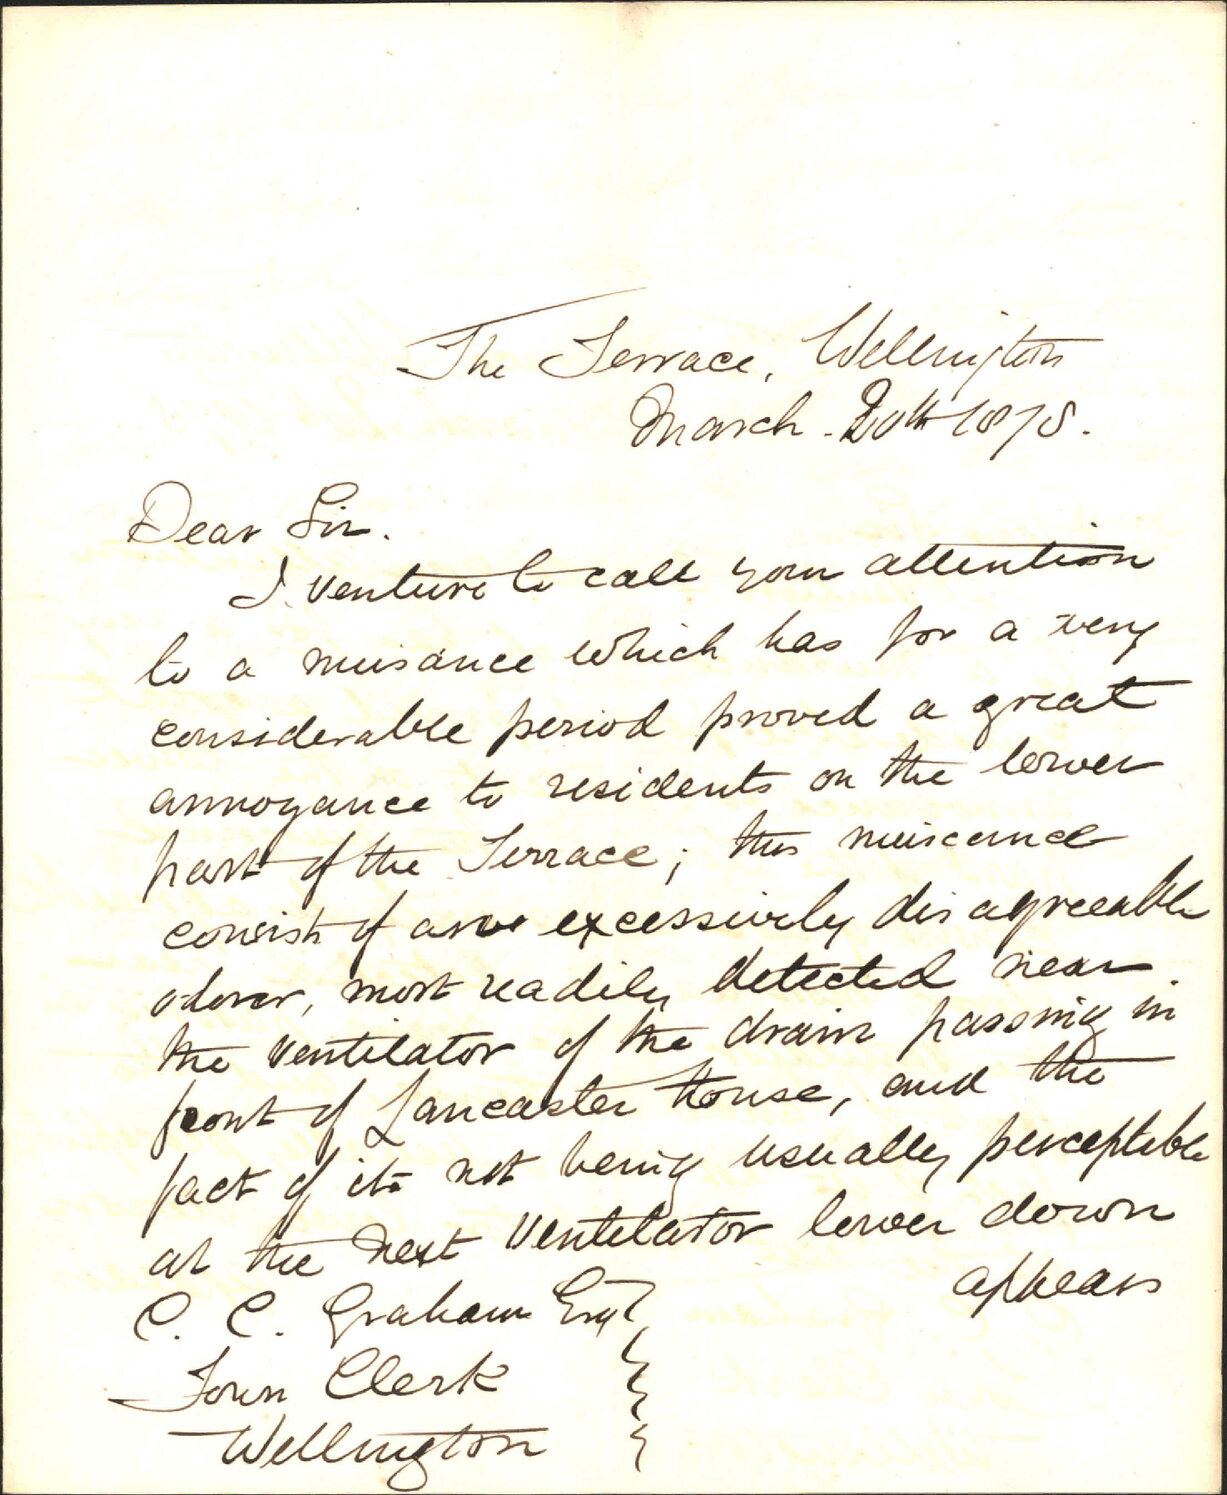 The Terrace, Wellington
March. 20th 1878.
Dear Sir.
I venture to call your attention
to a nuisance which has for a very
considerable period proved a great
annoyance to residents on the lower
part of the Terrace; this nuiscence
consists of an excessively disagreeable
odour, most readily detected near
the ventilator of the drain passing in
front of Lancaster House, and the
fact of its not being usually perceptible
at the next ventilator lower down
appears
C. C. Graham Esqr
Town Clerk
Wellington